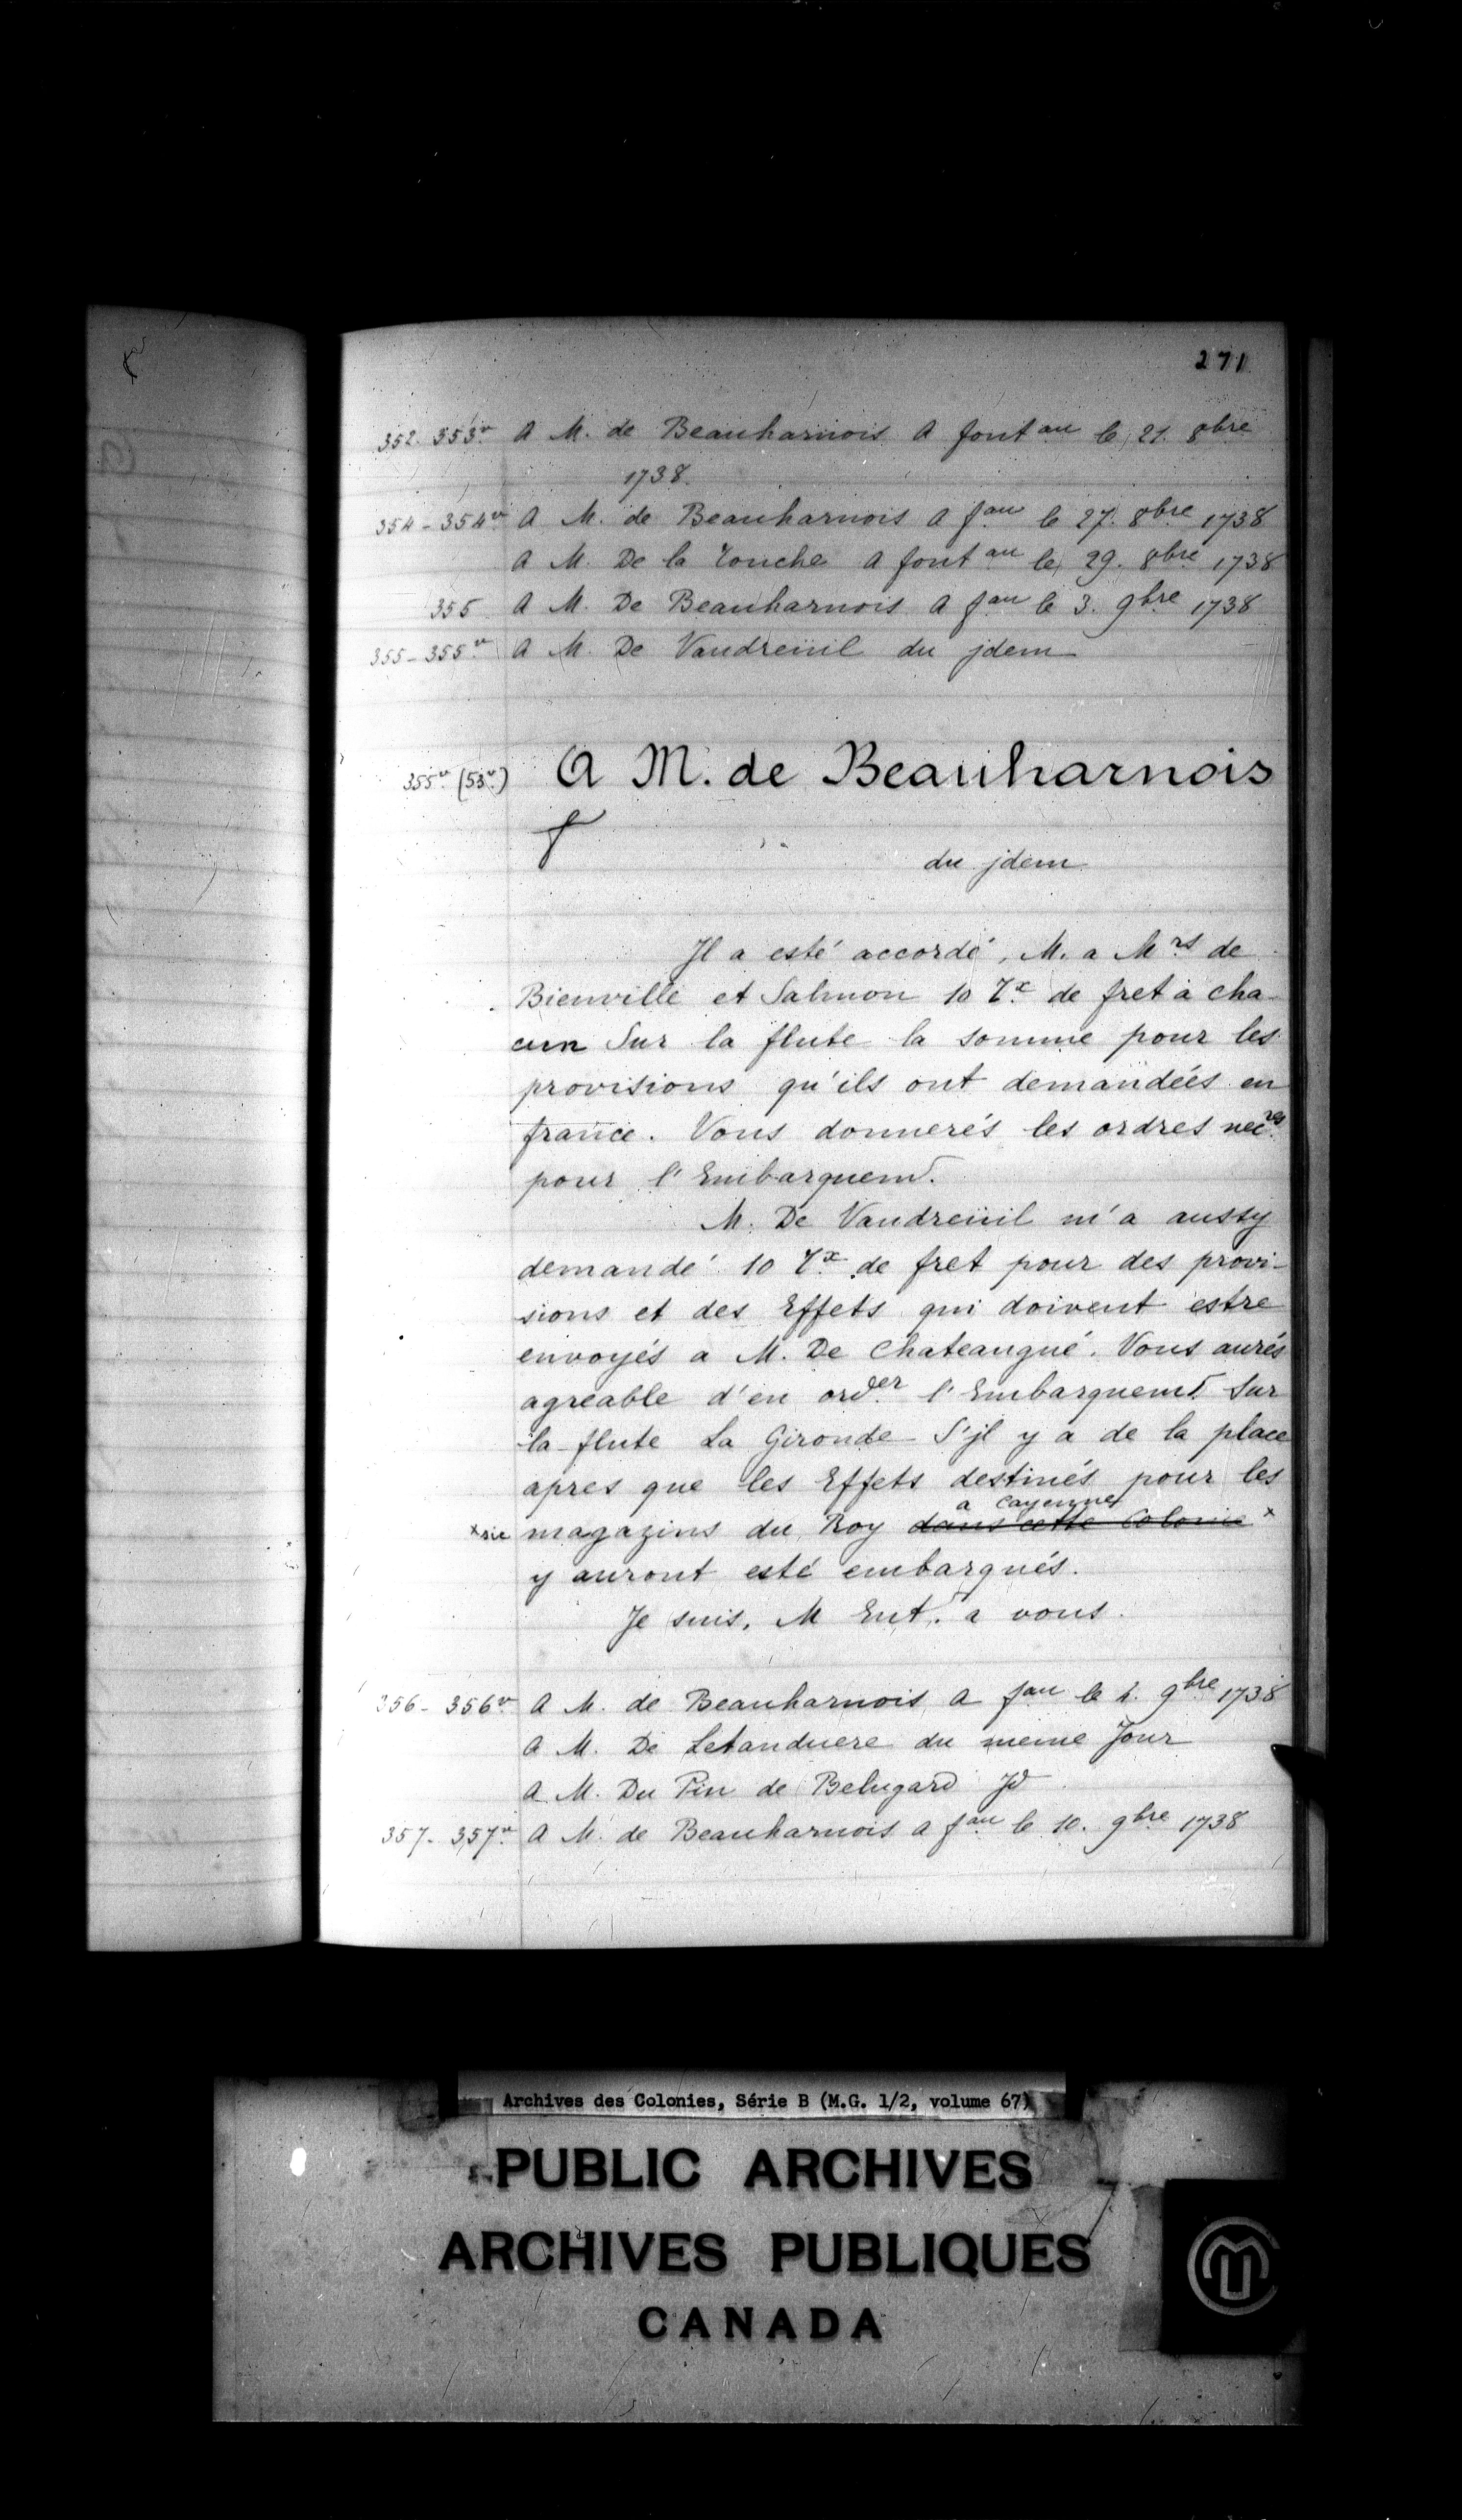 271
352. 353v. A M. de Beauharnois A font au le 21. 8bre
1738.
354 - 354v A M. de Beauharnois A fau le 27. 8bre 1738
A M. De la Touche A font au le 29. 8bre 1738
355 A M. De Beauharnois A fau le 3. 9bre 1738
355 - 355v A M. De Vaudreüil du jdem
355v (53v.) A M. de Beauharnois
du jdem
Jl a esté accordé, M. a Mrs de
Bienville et Salmon 10 Tx de fret à cha-
cun Sur la flute la somme pour les
provisions qu'ils ont demandées en
france. Vous donnerés les ordres necres
pour l'Embarquemt.
M. De Vaudreüil m'a aussy
demandé 10 Tx de fret pour des provi-
sions et des Effets qui doivent estre
envoyés a M. De Chateaugué. Vous aurés
agréable d'en order l'Embarquemt Sur
la flute La Gironde S'jl y a de la place
apres que les Effets destinés pour les
a Cayenne
x sic magazins du Roy dans cette Colonie x
y auront esté embarqués.
Je suis, M Ent. a vous.
356 - 356v A M. de Beauharnois a fau le 9bre 1738
A M. De Letanduere du meme Jour
A M. Du Pin de Belugard Jd
357 - 357v A M. de Beauharnois a fau le 10. 9bre 1738
Archives des Colonies, Série B (M.G. 1/2, volume 67)
PUBLIC ARCHIVES
ARCHIVES PUBLIQUES
CANADA